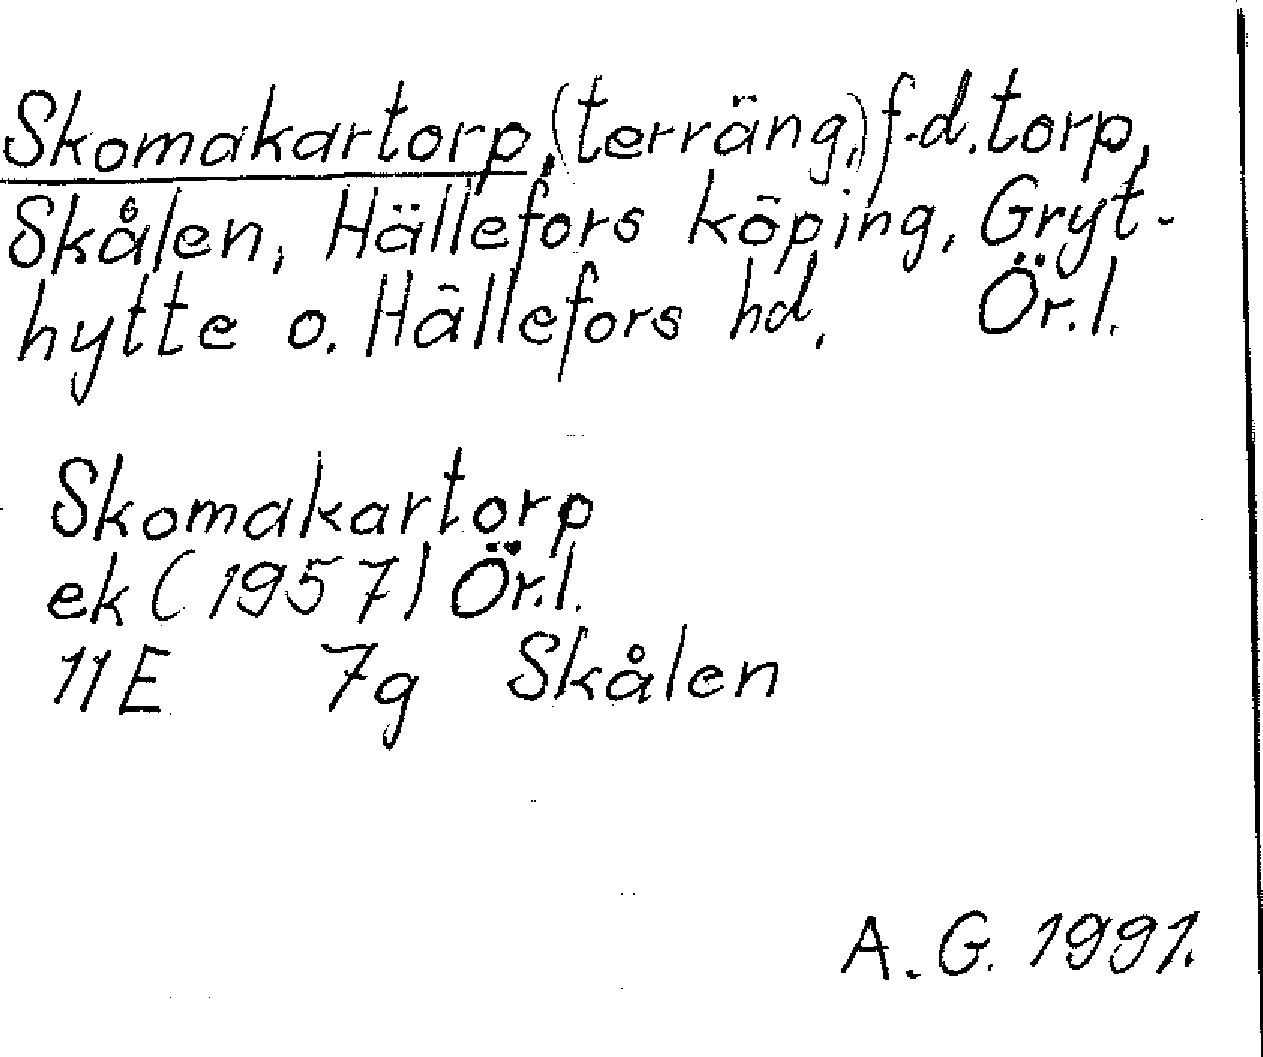 Skomakartorp, (terräng,) f.d. torp,
Skålen, Hällefors köping, Gryt-
hytte o. Hällefors hd, Ör.l.
Skomakartorp
ek (1957) Ör.l.
11E 7g Skålen
A.G. 1991.